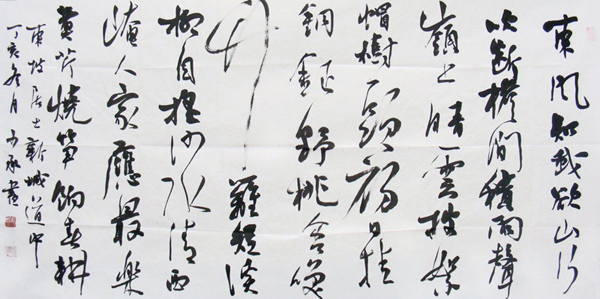 東風知我欲山行
吹斷檐間積雨聲
嶺上晴雲披絮
帽樹頭初日挂
銅鉦野桃含笑
竹籬短溪
柳自搖沙水清西
崦人家應最樂
煮芹燒筍餉春耕
東坡居士新城道中
丁亥冬月